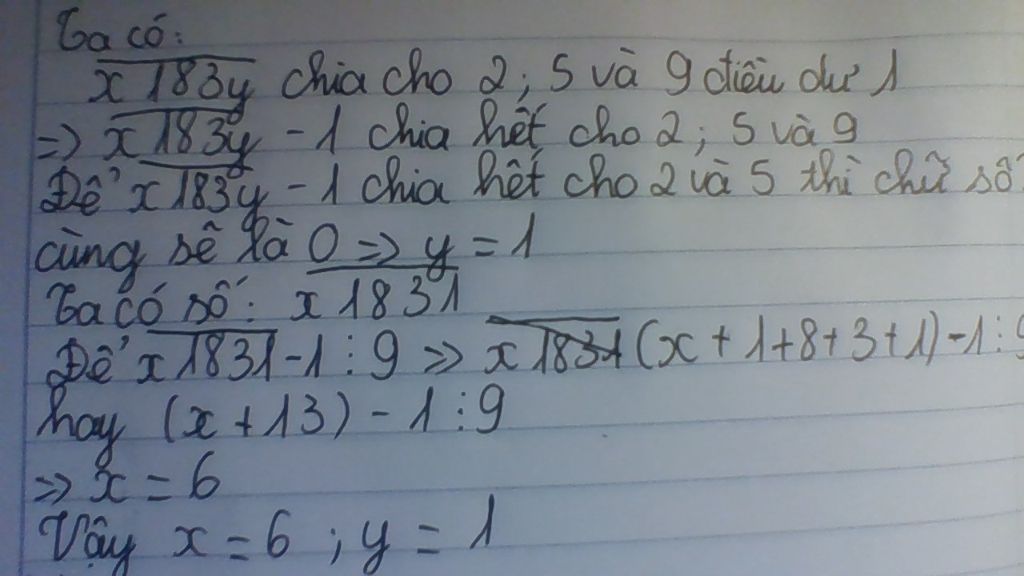 Ta có:
x183y chia cho 2; 5 và 9 điều dư 1
=> x183y - 1 chia hết cho 2; 5 và 9
Để x183y - 1 chia hết cho 2 và 5 thì chữ số
cùng sẽ là 0 => y = 1
Ta có số: x1831
Để x1831 - 1 ⋮ 9 => x1831 (x + 1+8+3+1) - 1 ⋮ 9
hay (x + 13) - 1 ⋮ 9
=> x = 6
Vậy x = 6 ; y = 1